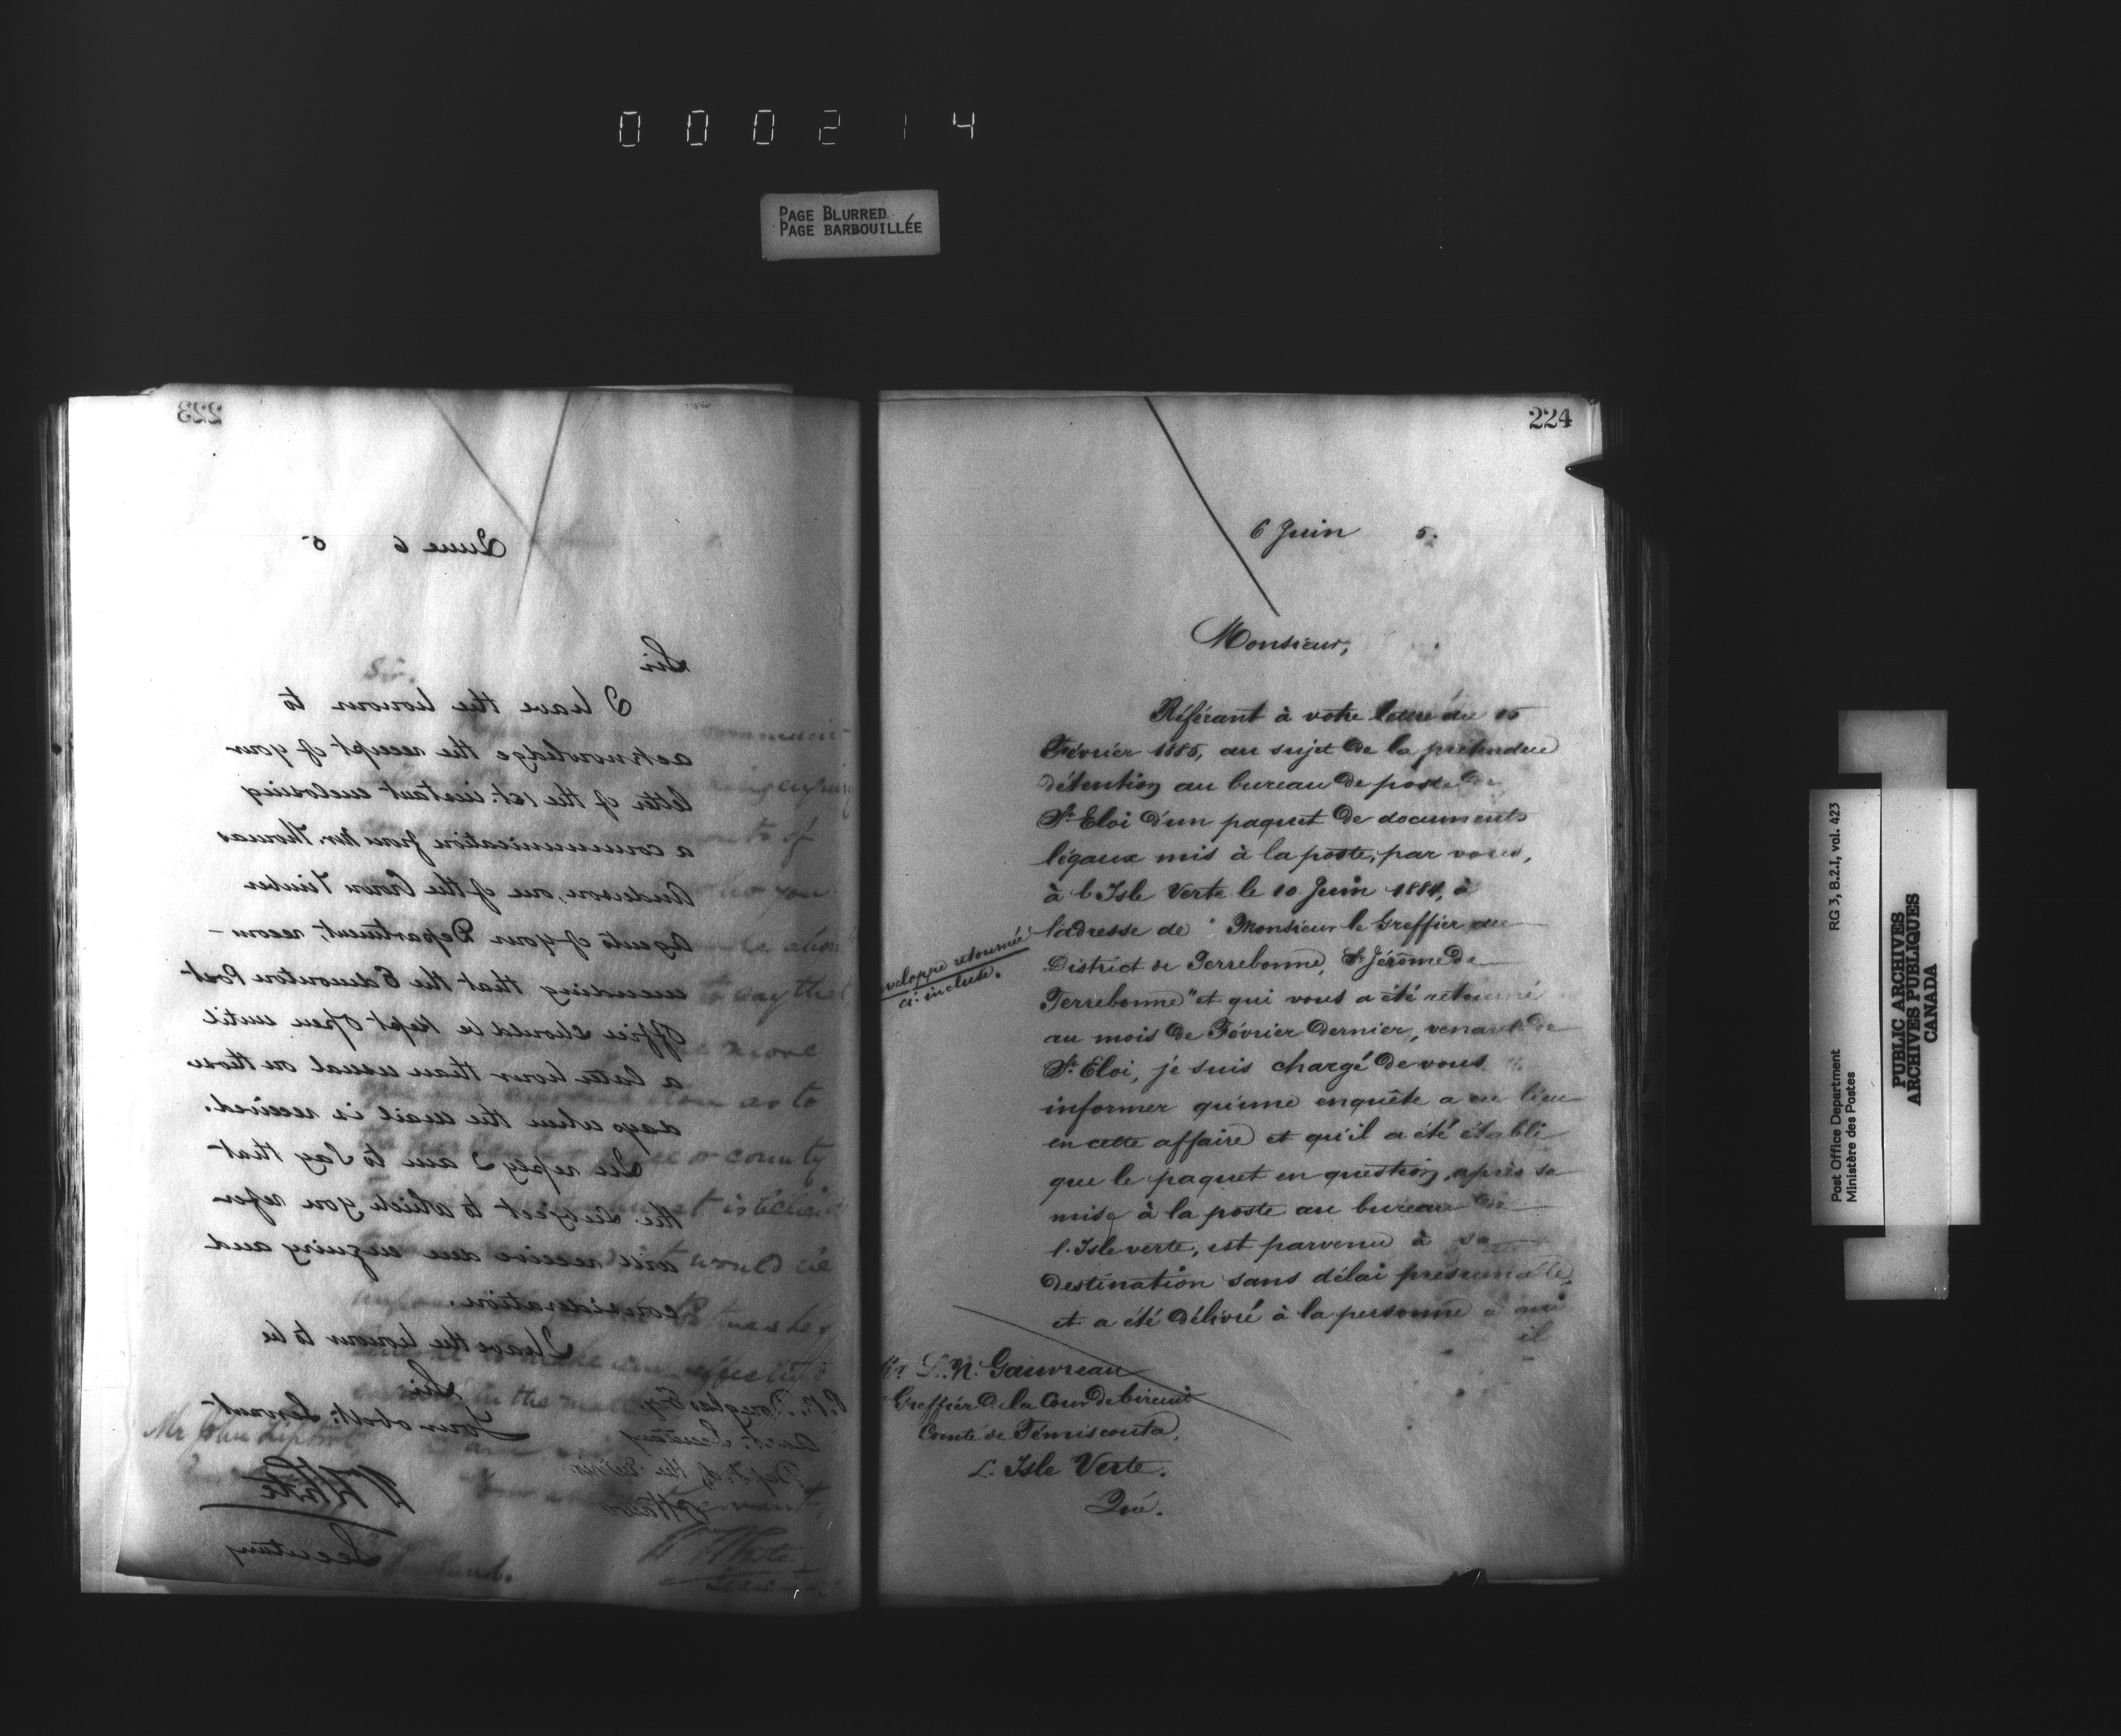 000214
PAGE BLURRED
PAGE BARBOUILLÉE
223
June 6 5
Sir
I have the honour to
acknowledge the receipt of your
letter of the 1st. instant enclosing
a communication from Mr. Thomas
Anderson, one of the Crown Timber
Agents of your Department, recom-
mending that the Edmonton Post
Office should be kept open until
a later hour than usual on those
days when the mail is received.
In reply I am to say that
the subject to which you refer
will receive due enquiry and
consideration.
I have the honour to be
Sir
Your obdt: Servant
P. B. Douglas Esq.
Asst: Secretary
Dept. of the Interior
Ottawa
W White
Secretary
224
6 Juin 5.
Monsieur,
Référant à votre lettre du 16
Février 1885, au sujet de la prétendue
détention au bureau de poste de
St. Eloi d'un paquet de documents
légaux mis à la poste, par vous,
à l'Isle Verte le 10 Juin 1884, à
l'adresse de "Monsieur le Greffier du
District de Terrebonne, St. Jérôme de
Terrebonne" et qui vous a été retourné
au mois de Février dernier, venant de
St. Eloi, je suis chargé de vous
informer qu'une enquête a eu lieu
en cette affaire et qu'il a été établi
que le paquet en question, après sa
mise à la poste au bureau de
l'Isle verte, est parvenu à sa
destination sans délai présumable,
et a été délivré à la personne à qui
il
veloppe retournée
ci-incluse.
L. N. Gauvreau
Greffier de la Cour de Circuit
Comté de Témiscouta,
L'Isle Verte.
Qué.
Post Office Department
Ministère des Postes
RG 3, B.2.I, vol. 423
PUBLIC ARCHIVES
ARCHIVES PUBLIQUES
CANADA